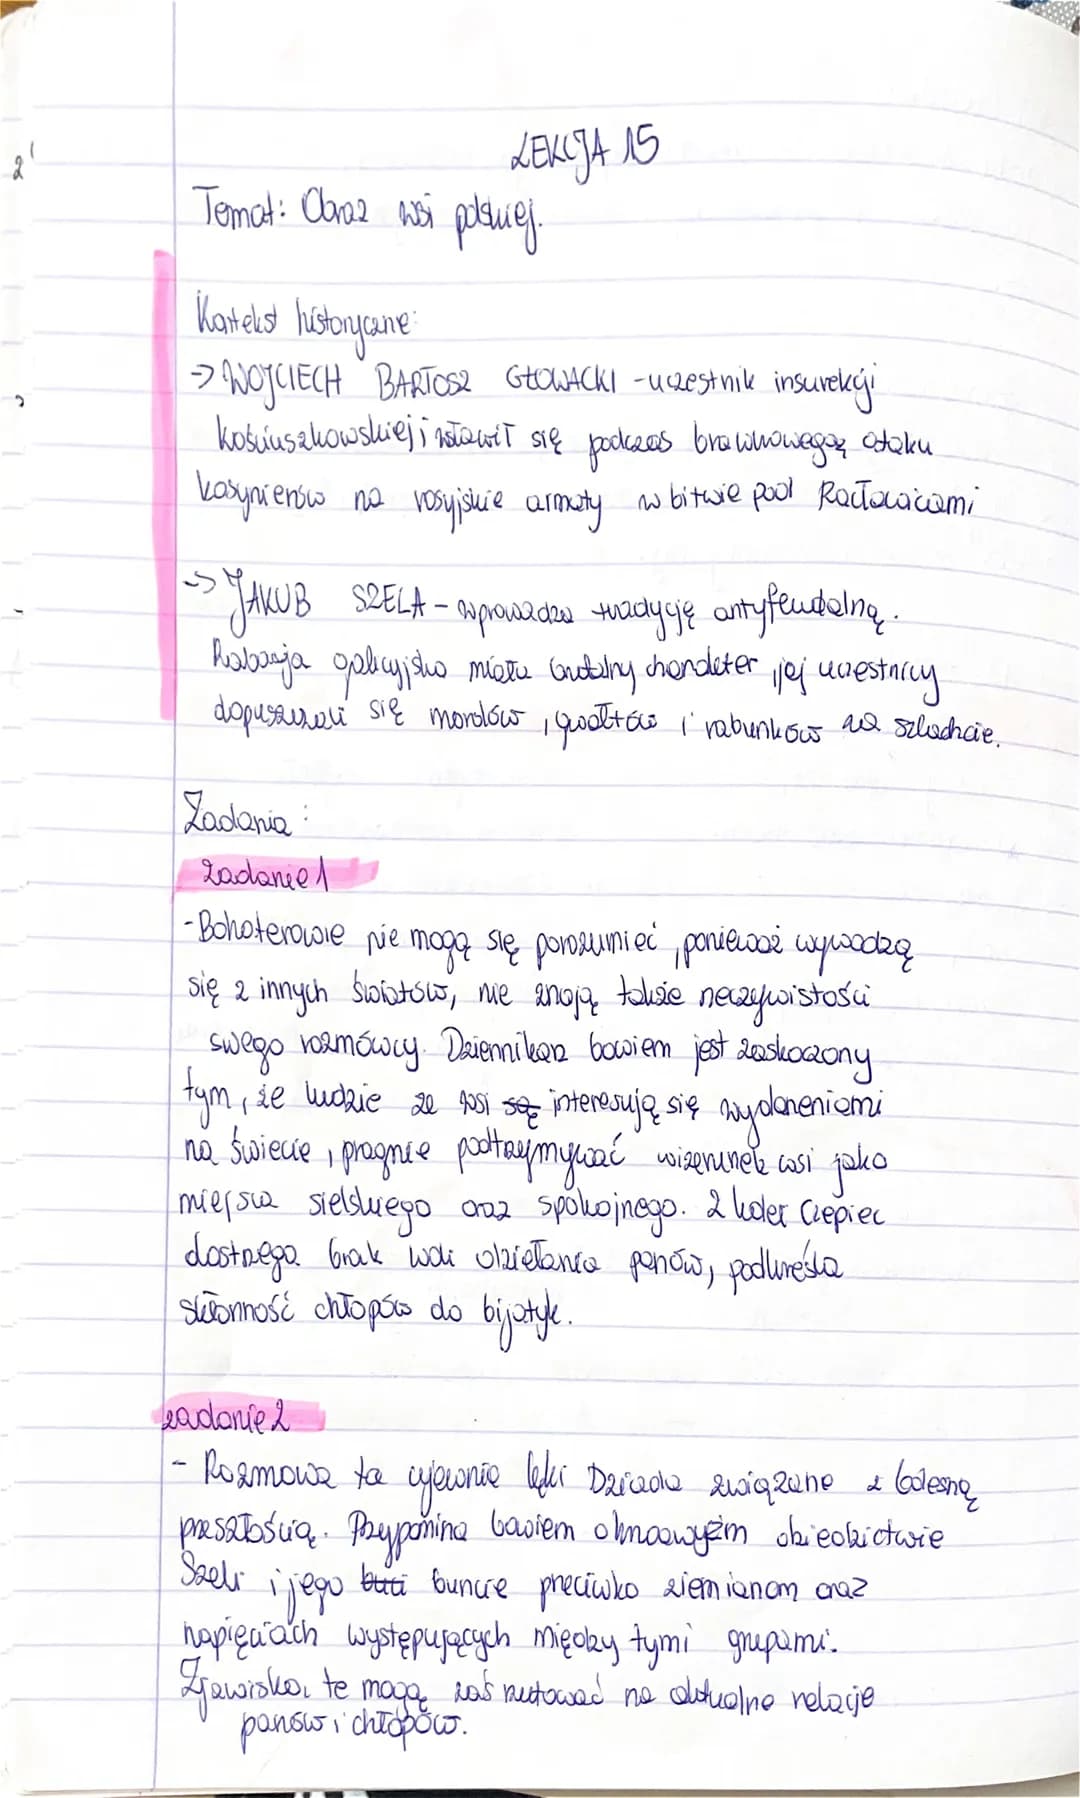 2
LEKCJA 15
Temat: Obraz wsi polskiej.
Kontekst historyczne:
-> WOJCIECH BARTOSZ GŁOWACKI - uczestnik insurekcji
kościuszkowskiej i wsławił się podczas brawurowego ataku
kosynierów na rosyjskie armaty w bitwie pod Racławicami
-> JAKUB SZELA - wprowadza tradycję antyfeudalną.
Rabacja galicyjska miała brutalny charakter, jej uczestnicy
dopuszczali się mordów, gwałtów i rabunków na szlachcie.
Zadania:
zadanie 1
- Bohaterowie nie mogą się porozumieć, ponieważ wywodzą
się z innych światów, nie znają także rzeczywistości
swego rozmówcy. Dziennikarz bowiem jest zaskoczony
tym, że ludzie ze wsi są interesują się wydarzeniami
na świecie, pragnie podtrzymywać wizerunek wsi jako
miejsca sielskiego oraz spokojnego. Z kolei Czepiec
dostrzega brak woli działania panów, podkreśla
skłonność chłopów do bijatyk.
zadanie 2
- Rozmowa ta ujawnia lęki Dziada związane z bolesną
przeszłością. Przypomina bowiem o krwawym dziedzictwie
Szeli i jego buncie przeciwko ziemianom oraz
napięciach występujących między tymi grupami.
Zjawiska te mogą zaś rzutować na aktualne relacje
panów i chłopów.